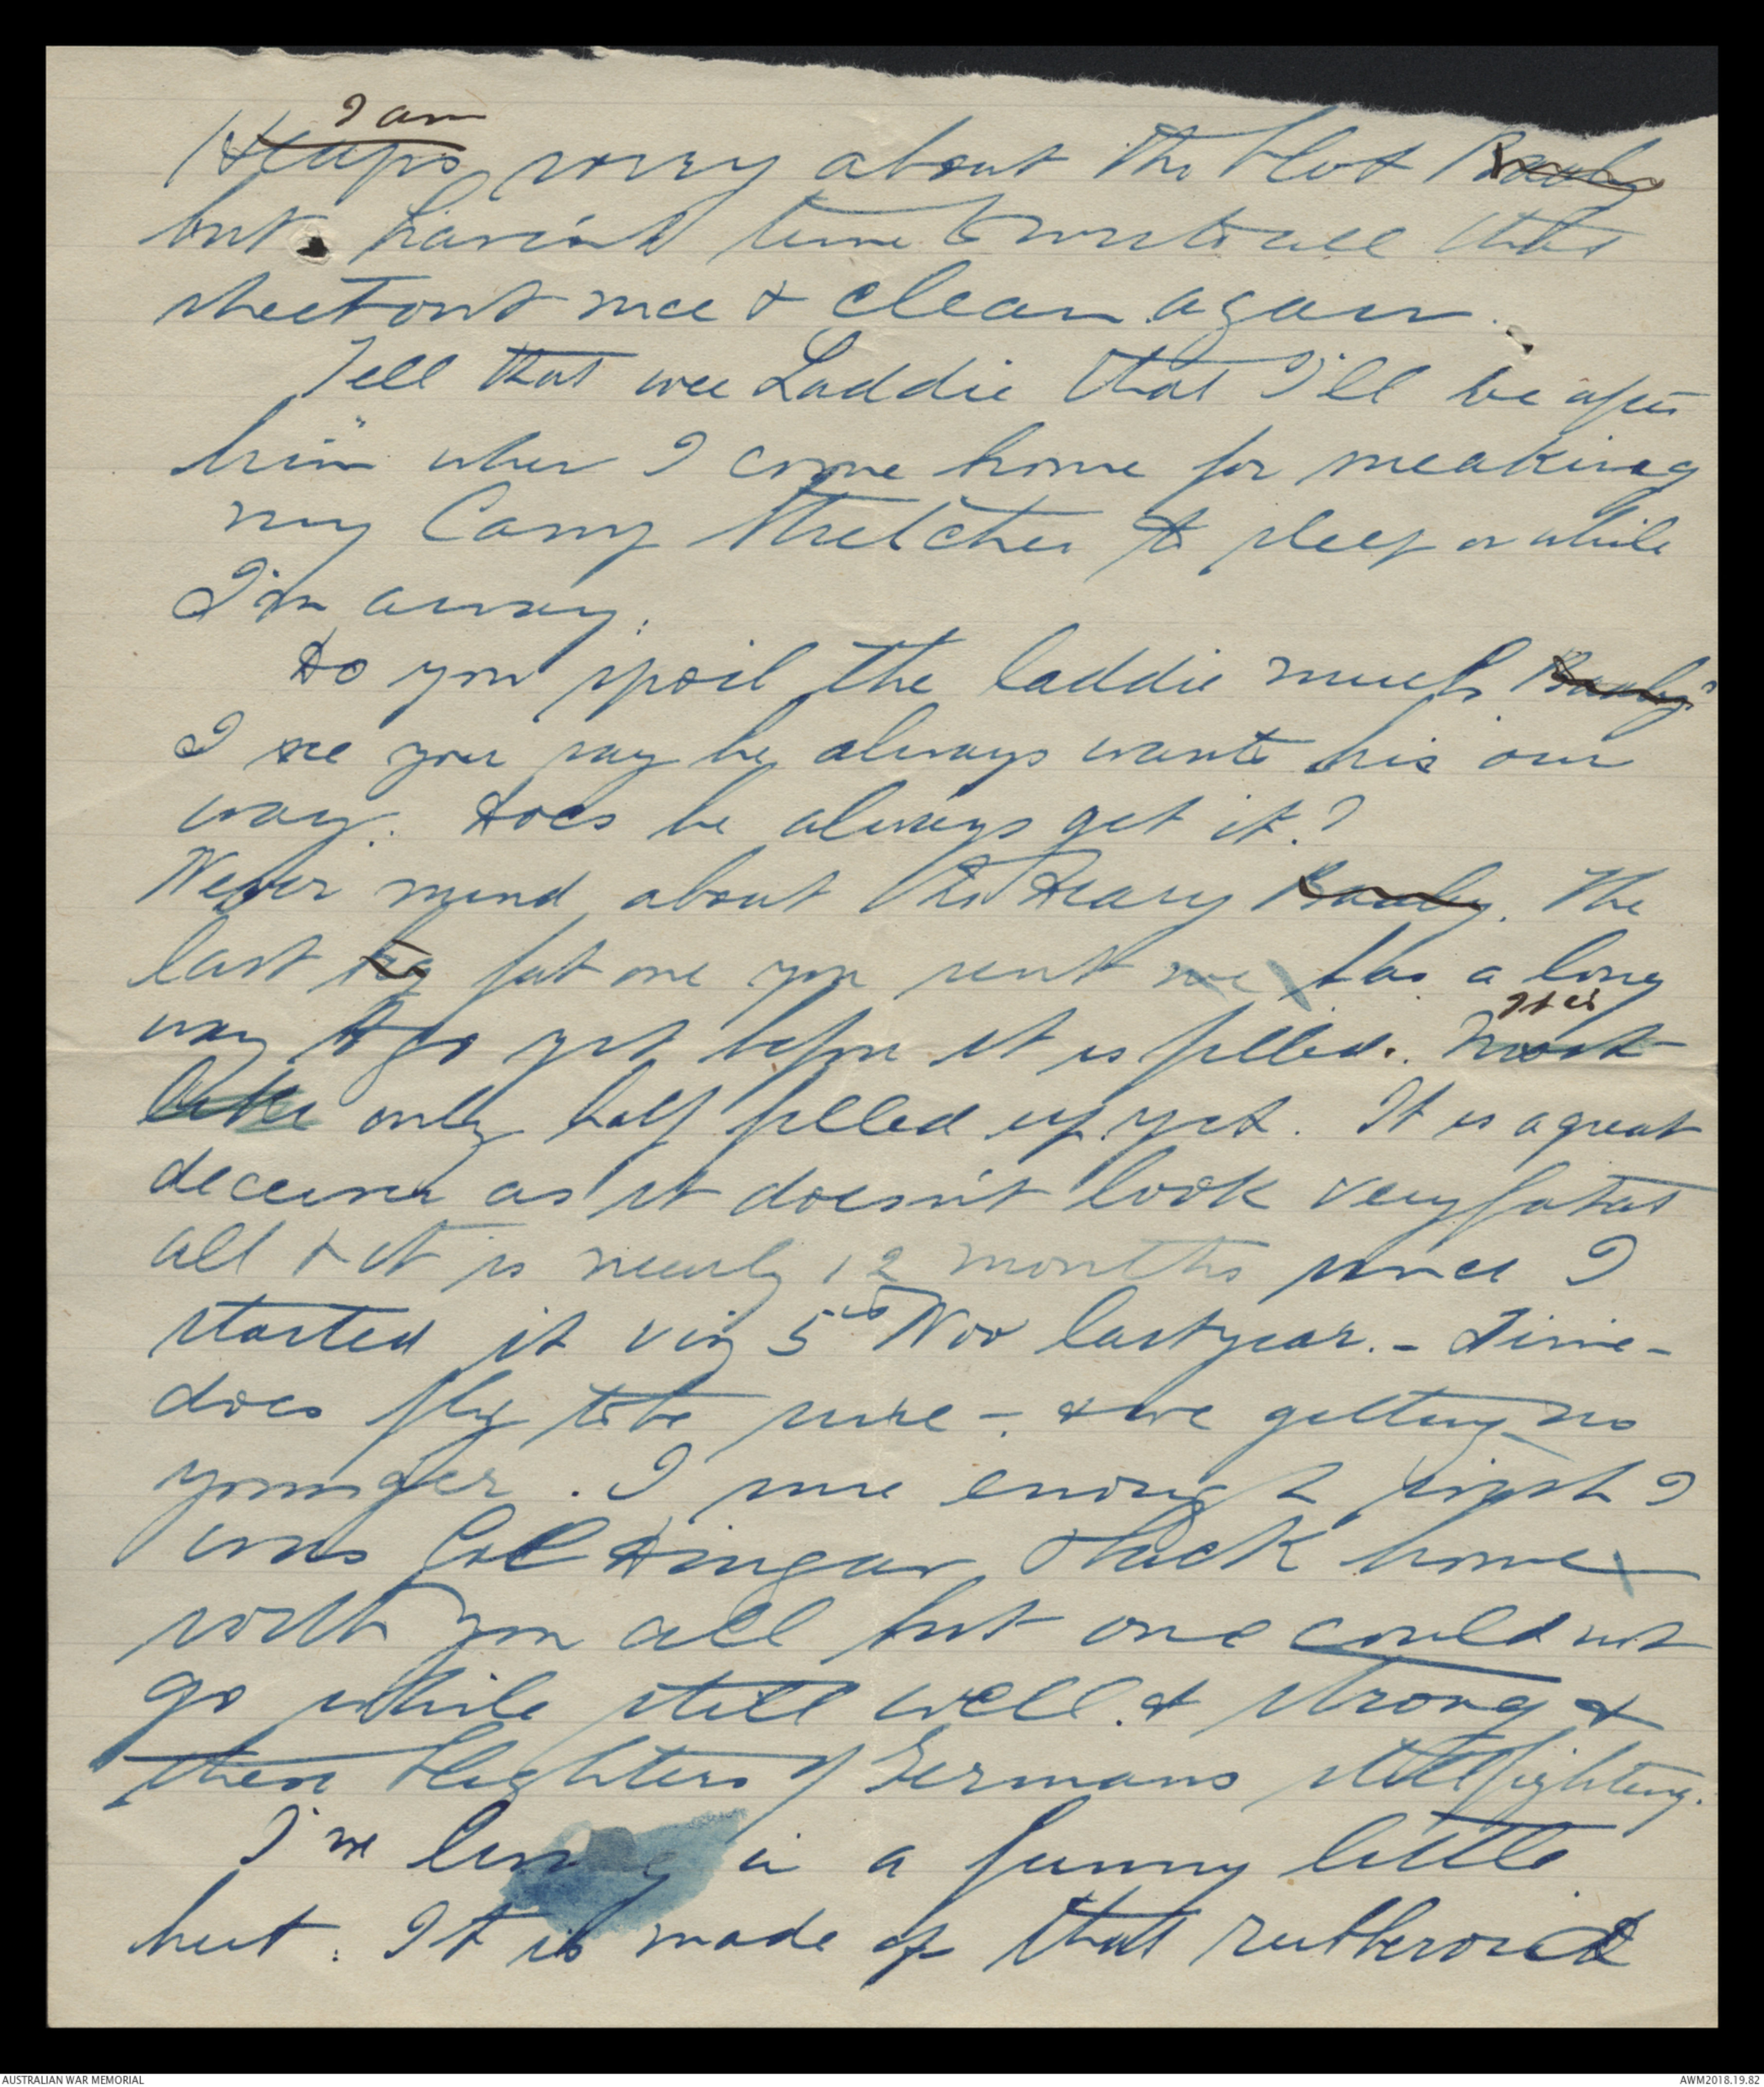 I am
Heaps sorry about the blot
but haven't time to write all this
sheet out nice & clean again.
Tell that wee Laddie that I'll be after
him when I come home for sneaking
my Camp Stretcher to sleep on while
I'm away.
Do you spoil the laddie much
I see you say he always wants his own
way. Does he always get it?
Never mind about the Diary Bauby. The
last big fat one you sent me has a long
way to go yet before it is filled. It is
only half filled up yet. It is a great
deceiver as it doesn't look very fat at
all & it is nearly 12 months since I
started it viz 5th Nov last year. - Time -
does fly to be sure - & we getting no
younger. I sure enough wish I
was Col Dingar & back home
with you all but one could not
go while still well & strong &
these blighters of Germans still fighting.
I'm living in a funny little
hut. It is made of that rubberoid
AUSTRALIAN WAR MEMORIAL
AWM2018.19.82